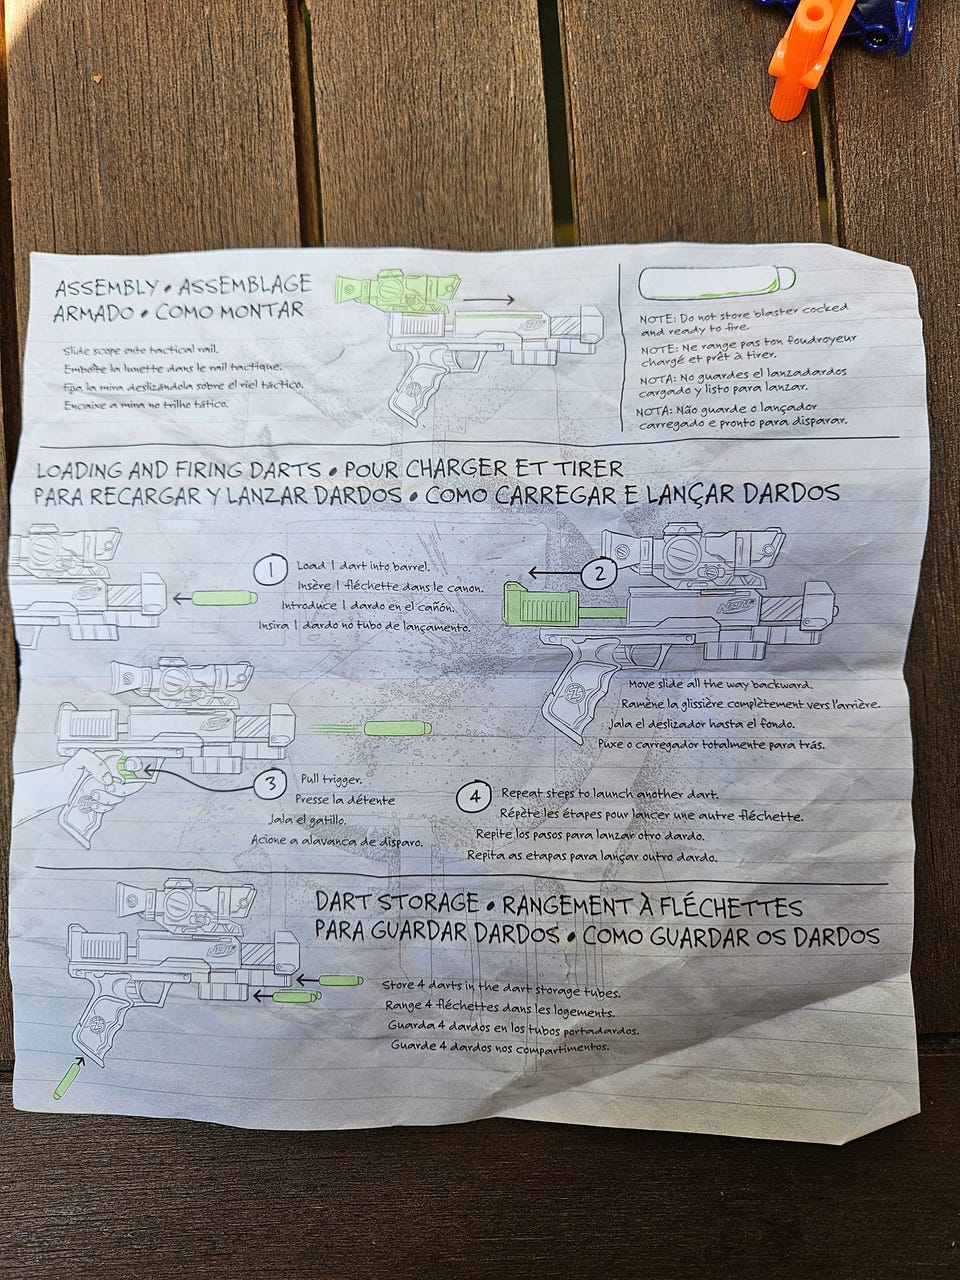 ASSEMBLY • ASSEMBLAGE
ARMADO • COMO MONTAR
Slide scope onto tactical rail.
Emboîte la lunette dans le rail tactique.
Fija la mira deslizándola sobre el riel táctico.
Encaixe a mira no trilho tático.
NERF
NOTE: Do not store blaster cocked
and ready to fire.
NOTE: Ne range pas ton foudroyeur
chargé et prêt à tirer.
NOTA: No guardes el lanzadardos
cargado y listo para lanzar.
NOTA: Não guarde o lançador
carregado e pronto para disparar.
LOADING AND FIRING DARTS • POUR CHARGER ET TIRER
PARA RECARGAR Y LANZAR DARDOS • COMO CARREGAR E LANÇAR DARDOS
NERF
1 Load 1 dart into barrel.
Insère 1 fléchette dans le canon.
Introduce 1 dardo en el cañón.
Insira 1 dardo no tubo de lançamento.
2
NERF
Move slide all the way backward.
Ramène la glissière complètement vers l'arrière.
Jala el deslizador hasta el fondo.
Puxe o carregador totalmente para trás.
NERF
3 Pull trigger.
Presse la détente
Jala el gatillo.
Acione a alavanca de disparo.
4 Repeat steps to launch another dart.
Répète les étapes pour lancer une autre fléchette.
Repite los pasos para lanzar otro dardo.
Repita as etapas para lançar outro dardo.
DART STORAGE • RANGEMENT À FLÉCHETTES
PARA GUARDAR DARDOS • COMO GUARDAR OS DARDOS
NERF
Store 4 darts in the dart storage tubes.
Range 4 fléchettes dans les logements.
Guarda 4 dardos en los tubos portadardos.
Guarde 4 dardos nos compartimentos.